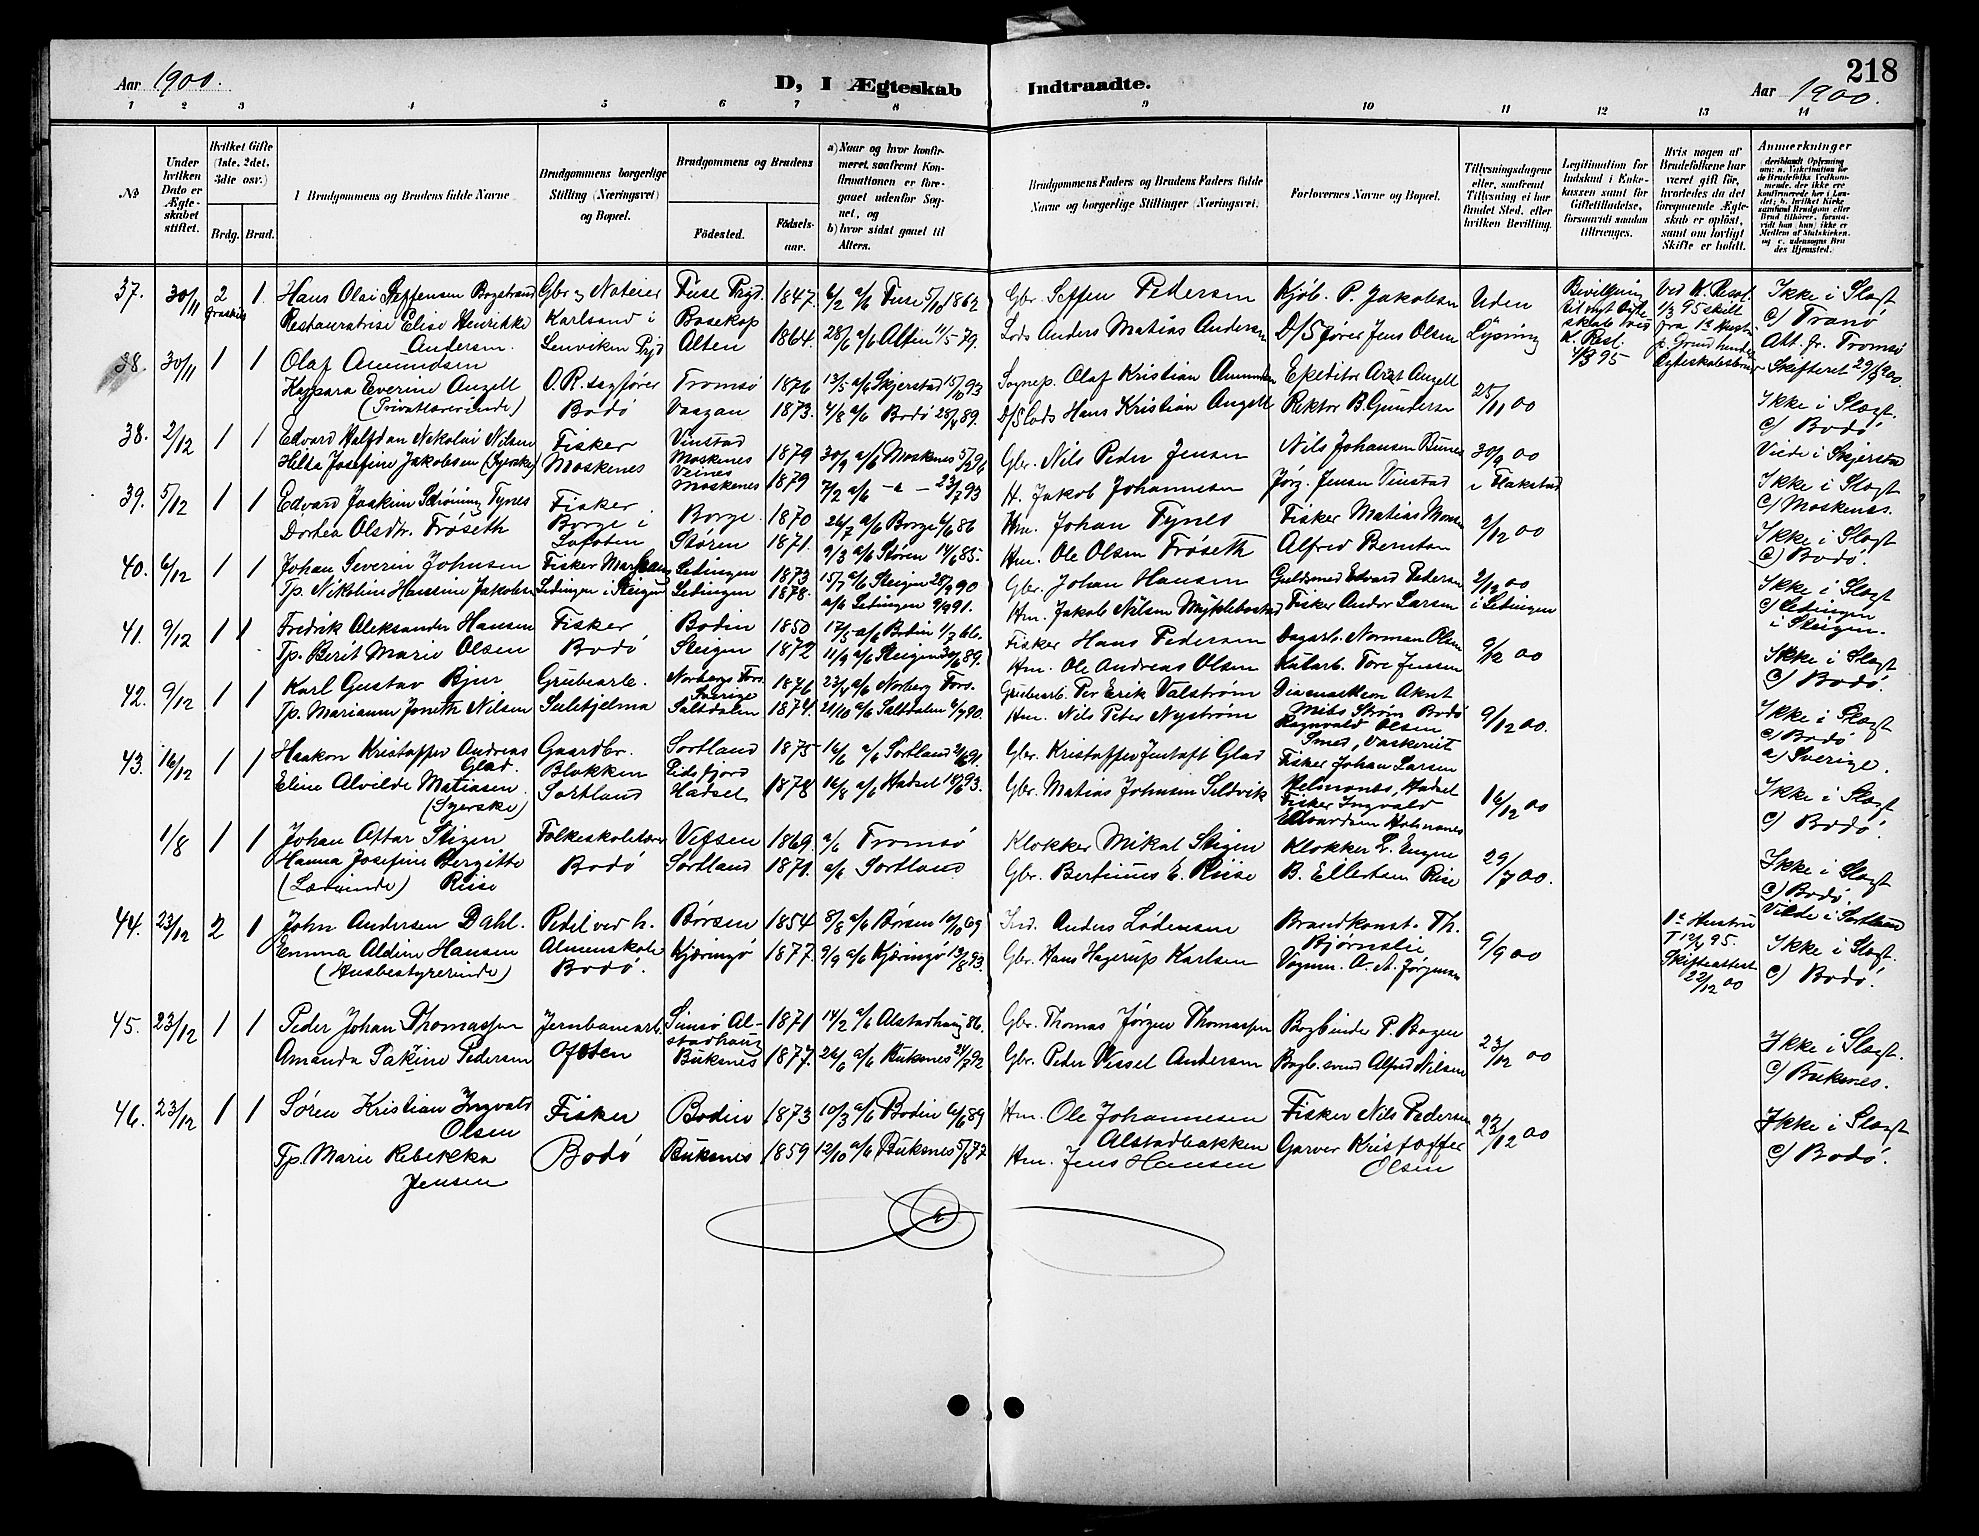 218
Aar 1900.
D, I Ægteskab Indtraadte.
Aar 1900.
1 2 3 4 5 6 7 8 9 10 11 12 13 14
No
Under hvilken Dato er Ægteskabet stiftet.
Hvilket Gifte (1ste, 2det, 3die osv.)
Brdg. Brud.
Brudgommens og Brudens fulde Navne
Brudgommens borgerlige Stilling (Næringsvei) og Bopæl.
Brudgommens og Brudens
Fødested. Fødselsaar.
a) Naar og hvor konfirmeret, saafremt Konfirmationen er foregaaet udenfor Sognet, og
b) hvor sidst gaaet til Alters.
Brudgommens Faders og Brudens Faders fulde Navne og borgerlige Stillinger (Næringsvei).
Forlovernes Navne og Bopæl.
Tillysningsdagene eller, saafremt Tillysning ei har fundet Sted, efter hvilken Bevilling.
Legitimation for Indskud i Enkekassen samt for Giftetilladelse, forsaavidt saadan tiltrænges.
Hvis nogen af Brudefolkene har været gift før, hvorledes da det foregaaende Ægteskab er opløst, samt om lovligt Skifte er holdt.
Anmerkninger
37. 30/11 2 1. Hans Olai Steffensen Bogstrand Gbr. Fuse Prgd. 1847 Fuse 5/10 1862 Gbr. Seffen Pedersen Kjøb. P. Jakobsen Uden Ikke i Slægt
Restauratrise Elise Henrikke Andersen Karlsand i Lenviken Prgd Bosekop Alten 1864. 28/6 a/b Alten 11/5 79. Lods Anders Matias Andersen D/S fører Jens Olsen Lysning c) Tranø
Bevilling til nyt Ægteskab ved K. Resl. 1/3 95
38. 30/11 1 1 Olaf Amundsen O. R. sagfører Tromsø 1876 13/5 a/b Skjerstad 15/10 93 Sognep. Olaf Kristian Amundsen Expeditør Arnt Angell 25/11 00 Ikke i Slægt.
Kaspara Severine Angell (Privatlærerinde) Bodø Vaagan 1873. 4/8 a/b Bodø 28/4 89. D/S Lods Hans Kristian Angell Rektor B. Gundersen c) Bodø
Viede i Skjerstad
38. 2/12 1 1 Edvard Halfdan Nikolai Nilsen Fisker Vinstad Moskenes 1879 30/9 a/b Moskenes 5/7 96 Gbr. Nils Peder Jensen Nils Johansen Bunes 30/9 00 Ikke i Slægt
Helta Josefine Jakobsen (Syerske) Moskenes Reines Moskenes 1879 7/2 a/b - a - 23/7 93 H. Jakob Johannesen Jørg. Jensen Vinstad i Flakstad c) Moskenes.
39. 5/12 1 1 Edvard Joakim Schrøning Tynes Fisker Borge 1870 26/7 a/b Borge 6/6 86 Hm. Johan Tynes Fisker Matias Monsen 2/12 00 Ikke i Slægt
Dorthea Olsdtr. Frøseth Borge i Lofoten Støren 1871. 9/3 a/b Støren 14/6 85. Hm. Ole Olsen Frøseth Alfred Berntsen c) Bodø.
40. 6/12 1 1 Johan Severin Johnsen Fisker Ledingen 1873 15/7 a/b Steigen 28/9 90 Gbr. Johan Hansen Guldsmed Edvard Pedersen 2/12 00 Ikke i Slægt
Tp. Nikoline Hansine Jakobsen Ledingen i Steigen Ledingen 1878. a/b Ledingen 9/9 91. Hm. Jakob Nilsen Myklebostad Fisker Andor Larsen i Ledingen c) Ledingen i Steigen.
41. 9/12 1 1 Fredrik Aleksander Hansen Fisker Bodin 1850 17/5 a/b Bodin 1/7 66. Fisker Hans Pedersen Dagarb. Norman Olsen 9/12 00 Ikke i Slægt
Tp. Berit Marie Olsen Bodø Steigen 1872 11/9 a/b Steigen 30/6 89. Hm. Ole Andreas Olsen Tore Jensen c) Bodø.
42. 9/12 1 1 Karl Gustav Bjur Grubearb. Norbergs Fors. Sverige 1876 23/4 a/b Norberg Fors. Grubearb. Per Erik Valstrøm 9/12 00. Ikke i Slægt
Tp. Marianne Joneth Nilsen Sulitjelma Saltdalen 1874. 21/10 a/b Saltdalen 6/7 90. Hm. Nils Peter Nystrøm Strøm Bodø Ragnvald Olsen Smed, Vaskeriet c) Bodø a) Sverige.
43. 16/12 1 1 Haakon Kristoffer Andreas Glad. Gaardbr. Sortland 1875 16/6 a/b Sortland 21/6 91. Gbr. Kristoffer Jentoft Glad Fisker Johan Larsen Melsnones, Hadsel 16/12 00 Ikke i Slægt
Eline Alvilde Matiasen (Syerske) Blokken Sortland Eidsfjord Hadsel 1878 16/8 a/b Hadsel 18/6 93. Gbr. Matias Johnsen Sildvik Fisker Ingvald Edvardsen c) Bodø.
1/8 1 1 Johan Ottar Stigen Folkeskolelærer Vefsen 1869. a/b Tromsø Klokker Mikal Stigen Klokker L. Engen 29/7 00. Ikke i Slægt
Hanna Josefine Bergitte Riise (Lærerinde) Bodø Sortland 1871. a/b Sortland Gbr. Bertinus E. Riise B. Ellertsen Rise c) Bodø. Viede i Sortland
44. 23/12 2 1 John Andersen Dahl. Pedel ved h. Almenskole Børsen 1854 8/8 a/b Børsen 10/10 69 Ind. Anders Lødensen Brandkonst. Th. Bjørnslie 9/9 00 1e Hustru † 12/4 95. Skifteattest 22/12 00 Ikke i Slægt.
Emma Aldine Hansen (Husbestyrerinde) Bodø. Kjæringø 1877. 9/9 a/b Kjæringø 13/8 93. Gbr. Hans Hagerup Karlsen Vognm. A. A. Jørgensen c) Bodø.
45. 23/12 1 1 Peder Johan Thomassen Jernbanearb. Simsø Alstadhaug 1871 14/2 a/b Alstadhaug 86. Gbr. Thomas Jørgen Thomassen Bogbinder P. Bogen 23/12 00 Ikke i Slægt.
Amanda Sakine Pedersen Ofoten Buksnes 1877. 26/6 a/b Buksnes 24/7 92 Gbr. Peder Wessel Andersen Bogb. svend Alfred Nilsen c) Buksnes.
46. 23/12 1 1 Søren Kristian Ingvald Olsen Fisker Bodin 1873 10/3 a/b Bodin 6/6 89 Hm. Ole Johannesen Alstadbakken Fisker Nils Pedersen 23/12 00 Ikke i Slægt
Tp. Marie Rebekka Jensen Bodø Buksnes 1859 12/10 a/b Buksnes 5/8 77 Hm. Jens Hansen Garver Kristoffer Olsen c) Bodø.